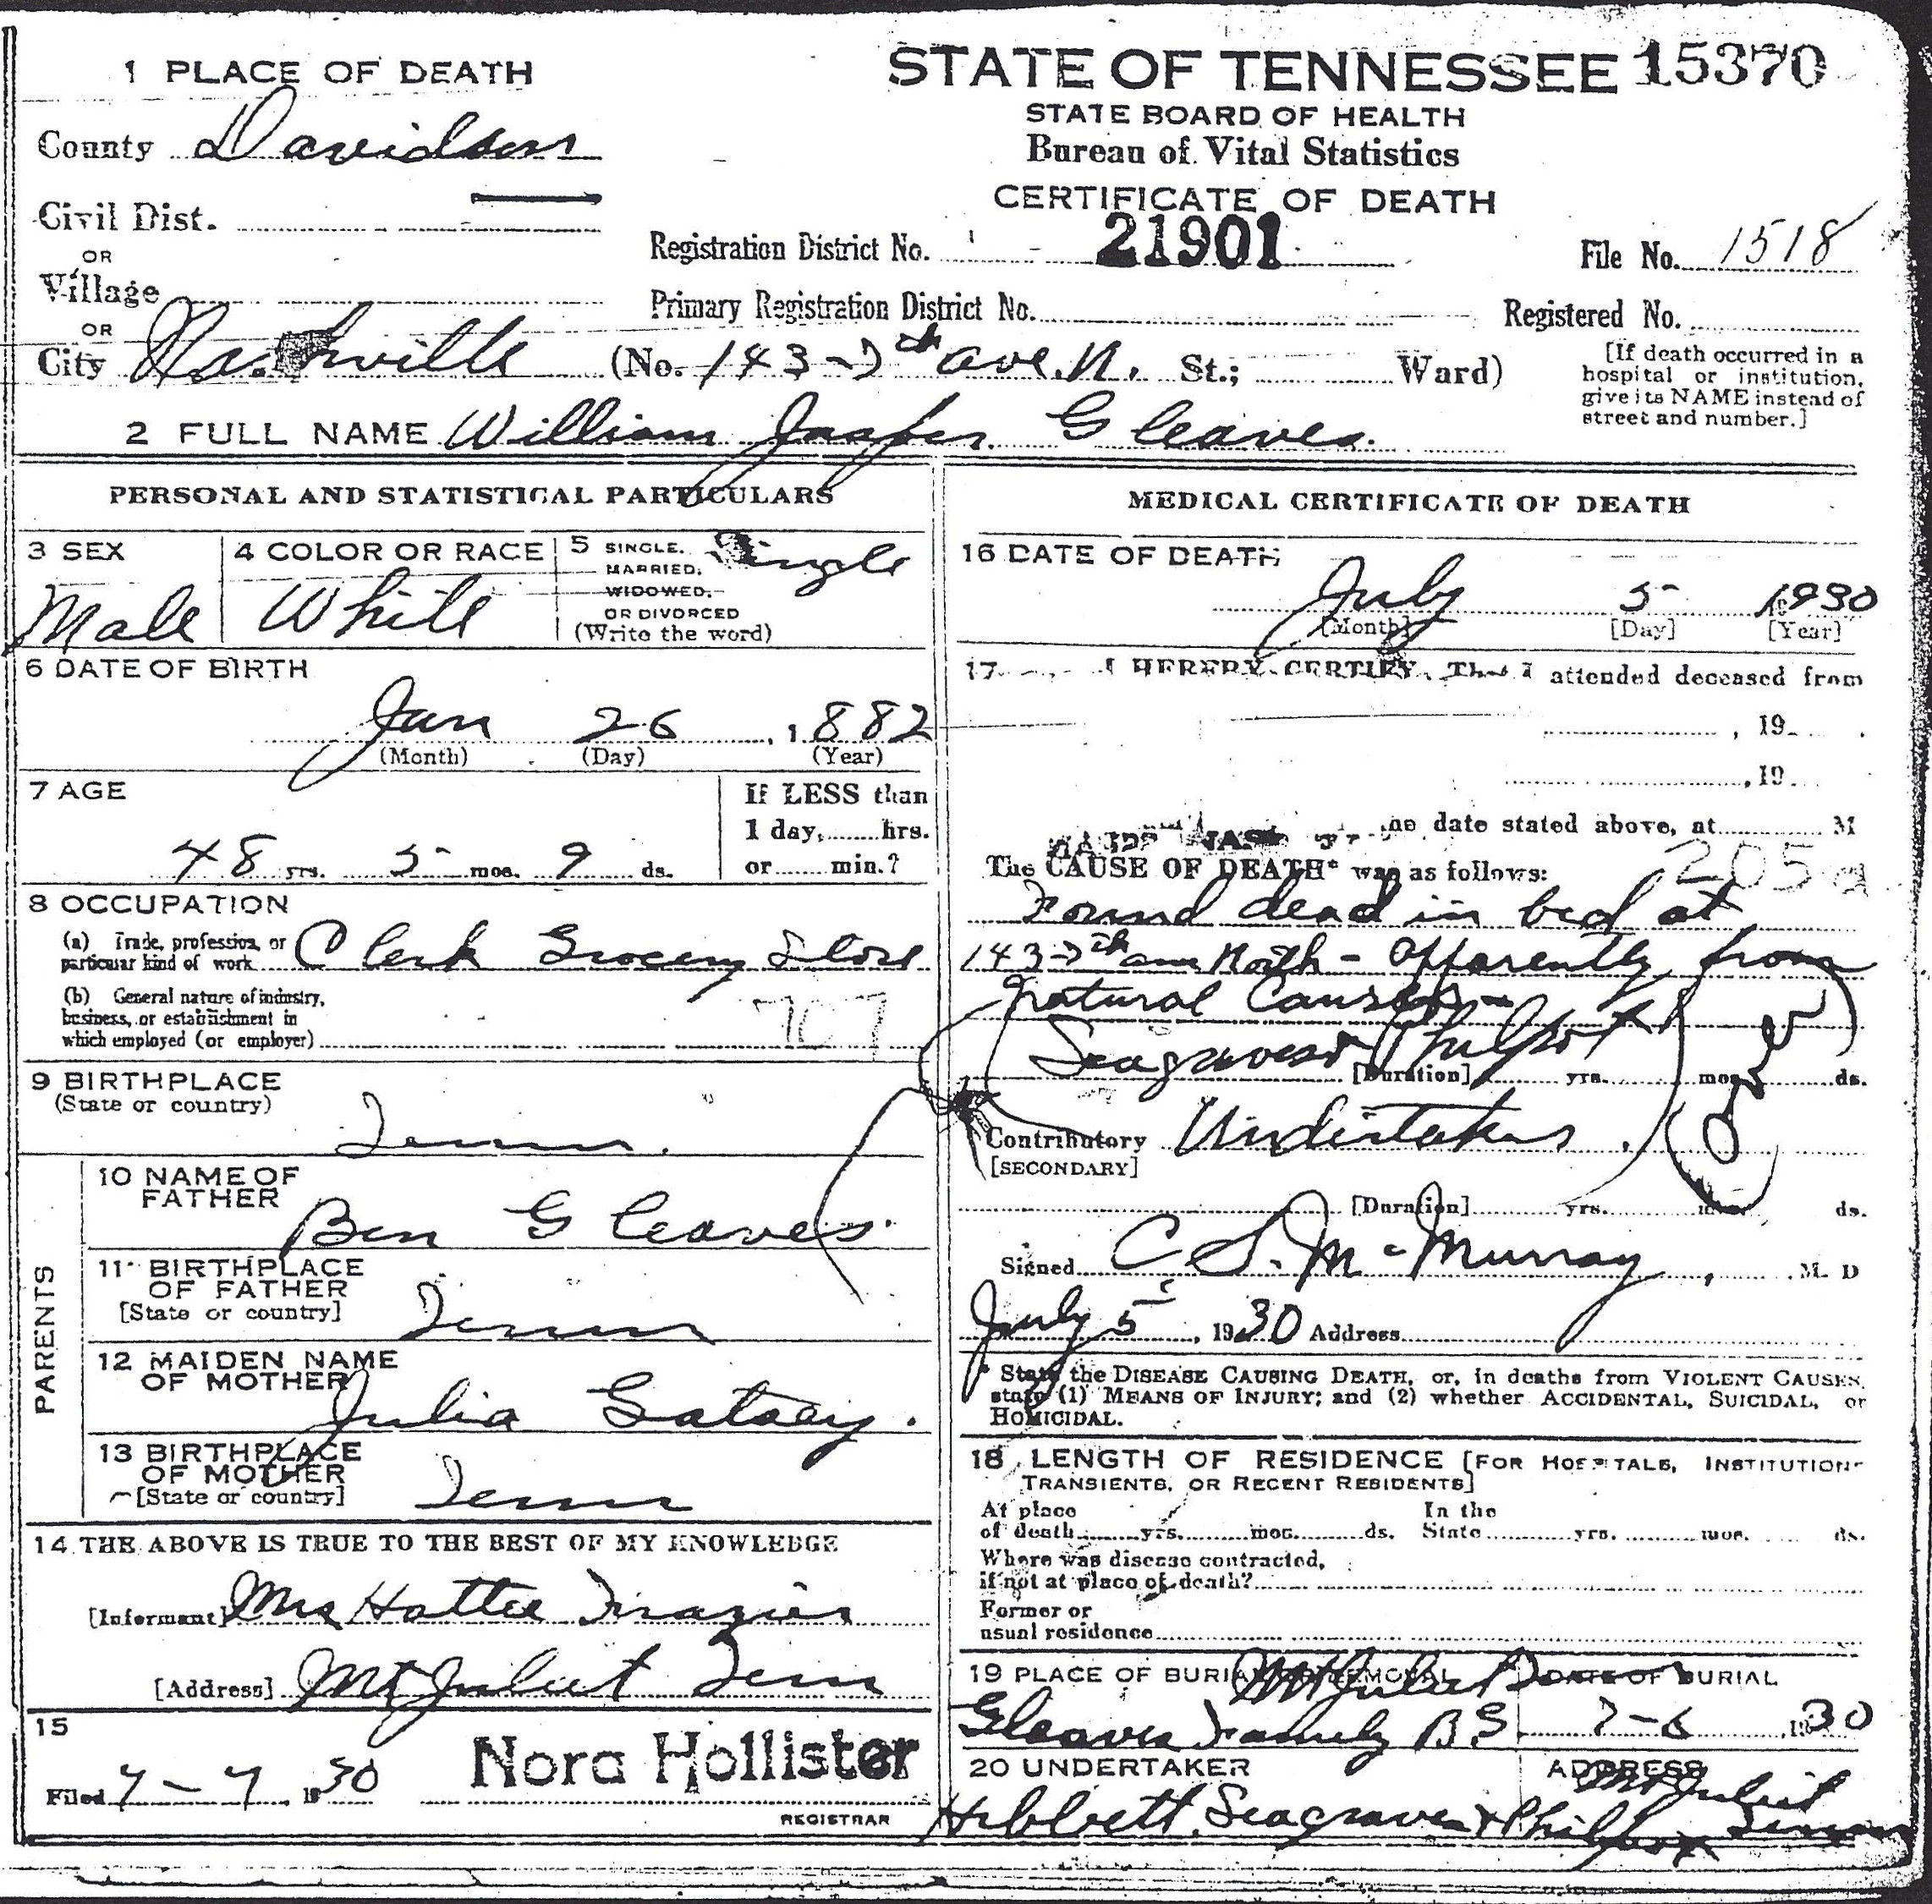 1 PLACE OF DEATH
STATE OF TENNESSEE 15370
STATE BOARD OF HEALTH
County Davidson
Bureau of Vital Statistics
CERTIFICATE OF DEATH
Civil Dist.
OR
Registration District No. 21901
File No. 1518
Village
OR
Primary Registration District No.
Registered No.
City Nashville (No. 143-7th ave. N. St.; Ward)
[If death occurred in a
hospital or institution,
give its NAME instead of
street and number.]
2 FULL NAME William Jasper Gleaves.
PERSONAL AND STATISTICAL PARTICULARS
3 SEX
Male
4 COLOR OR RACE
White
5 SINGLE,
MARRIED,
WIDOWED,
OR DIVORCED
(Write the word)
Single
6 DATE OF BIRTH
Jan 26, 1882
(Month) (Day) (Year)
7 AGE
48 yrs. 5 mos. 9 ds.
If LESS than
1 day, hrs.
or min.?
8 OCCUPATION
(a) Trade, profession, or
particular kind of work Clerk Grocery Store
(b) General nature of industry,
business, or establishment in
which employed (or employer)
707
9 BIRTHPLACE
(State or country)
Tenn.
PARENTS
10 NAME OF
FATHER
Ben Gleaves.
11 BIRTHPLACE
OF FATHER
[State or country]
Tenn
12 MAIDEN NAME
OF MOTHER
Julia
13 BIRTHPLACE
OF MOTHER
[State or country]
Tenn
14 THE ABOVE IS TRUE TO THE BEST OF MY KNOWLEDGE
[Informant] Mrs Hattie Frazier
[Address] Mt Juliet Tenn
15
Filed 7-7 1930
Nora Hollister
REGISTRAR
MEDICAL CERTIFICATE OF DEATH
16 DATE OF DEATH
July 5 1930
[Month] [Day] [Year]
17 I HEREBY CERTIFY, That I attended deceased from
, 19
, 19
the date stated above, at M
The CAUSE OF DEATH* was as follows:
205a
Found dead in bed at
143-7th ave North - apparently from
natural Causes -
Seagraves & Philpot
[Duration] yrs. mos. ds.
Over
Contributory Undertakers.
[SECONDARY]
[Duration] yrs. mos. ds.
Signed C S. McMurray, M. D
July 5, 1930 Address
* State the DISEASE CAUSING DEATH, or, in deaths from VIOLENT CAUSES,
state (1) MEANS OF INJURY; and (2) whether ACCIDENTAL, SUICIDAL, or
HOMICIDAL.
18 LENGTH OF RESIDENCE [FOR HOSPITALS, INSTITUTIONS
TRANSIENTS, OR RECENT RESIDENTS]
At place
of death yrs. mos. ds.
In the
State yrs. mos. ds.
Where was disease contracted,
if not at place of death?
Former or
usual residence
19 PLACE OF BURIAL OR REMOVAL
Mt Juliet Tenn
Gleaves Family B.G.
DATE OF BURIAL
7-6 1930
20 UNDERTAKER
Hibbett, Seagraves & Philpot
ADDRESS
Mt Juliet
Tenn